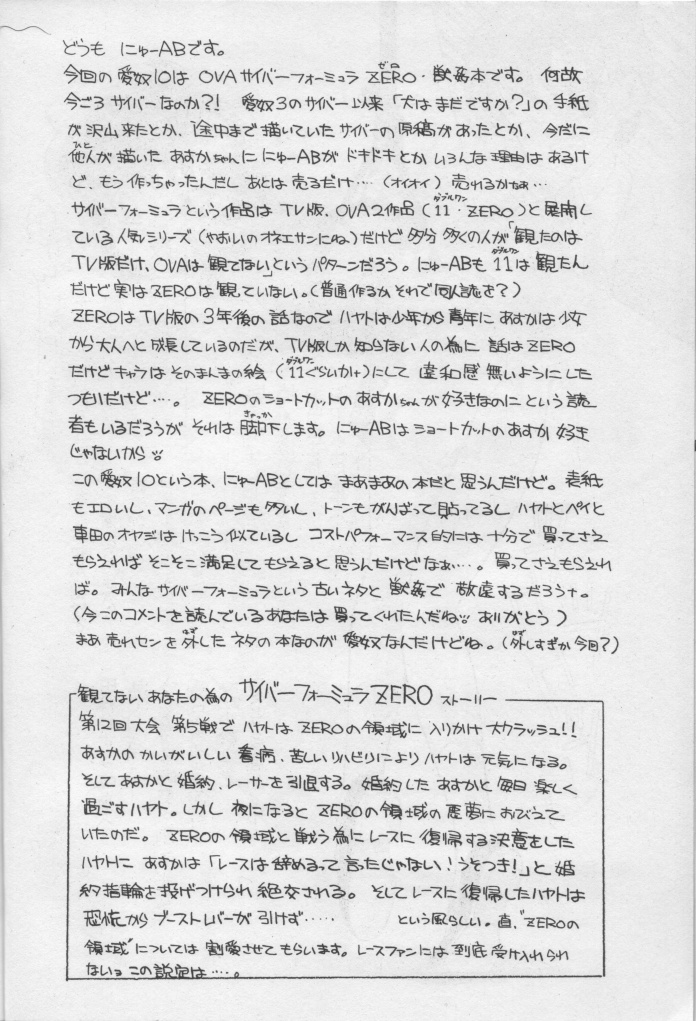 どうも にゅーABです。
今回の愛奴10は OVAサイバーフォーミュラ ZERO・獣姦本です。 何故
今ごろサイバーなのか?! 愛奴3のサイバー以来「犬はまだですか?」の手紙
が沢山来たとか、途中まで描いていたサイバーの原稿があったとか、今だに
他人が描いたあすかちゃんににゅーABがドキドキとかいろんな理由はあるけ
ど、もう作っちゃったんだしあとは売るだけ…(オイオイ) 売れるかなぁ…
サイバーフォーミュラという作品はTV版、OVA2作品(11・ZERO)と展開し
ている人気シリーズ(やおいのオネエサンにね)だけど多分多くの人が「観たのは
TV版だけ、OVAは観てない」というパターンだろう。にゅーABも11は観たん
だけど実はZEROは観ていない。(普通作るかそれで同人誌を?)
ZEROはTV版の3年後の話なのでハヤトは少年から青年にあすかは少女
から大人へと成長しているのだが、TV版しか知らない人の為に話はZERO
だけどキャラはそのまんまの絵(11ぐらいか+)にして違和感無いようにした
つもりだけど…。 ZEROのショートカットのあすかちゃんが好きなのにという読
者もいるだろうがそれは脚下します。にゅーABはショートカットのあすか好き
じゃないから
この愛奴10という本、にゅーABとしてはまあまあの本だと思うんだけど。表紙
もエロいし、マンガのページも多いし、トーンもがんばって貼ってるしハヤトとペイと
車田のオヤジはけっこう似ているしコストパフォーマンス的には十分で買ってさえ
もらえればそこそこ満足してもらえると思うんだけどなぁ…。買ってさえもらえれ
ば。みんなサイバーフォーミュラという古いネタと獣姦で敬遠するだろナ。
(今このコメントを読んでいるあなたは買ってくれたんだね ありがとう)
まあ売れセンを外したネタの本なのが愛奴なんだけどね。(外しすぎか今回?)
観てないあなたの為の サイバーフォーミュラ ZERO ストーリー
第12回大会 第5戦でハヤトはZEROの領域に入りかけ大クラッシュ!!
あすかのかいがいしい看病、苦しいリハビリによりハヤトは元気になる。
そしてあすかと婚約、レーサーを引退する。婚約したあすかと毎日楽しく
過ごすハヤト。しかし夜になるとZEROの領域の悪夢におびえて
いたのだ。 ZEROの領域と戦う為にレースに復帰する決意をした
ハヤトにあすかは「レースは辞めるって言ったじゃない!うそつき!」と婚
約指輪を投げつけられ絶交される。そしてレースに復帰したハヤトは
恐怖からブーストレバーが引けず…… という風らしい。直、"ZEROの
領域"については割愛させてもらいます。レースファンには到底受け入れられ
ないョこの設定は…。